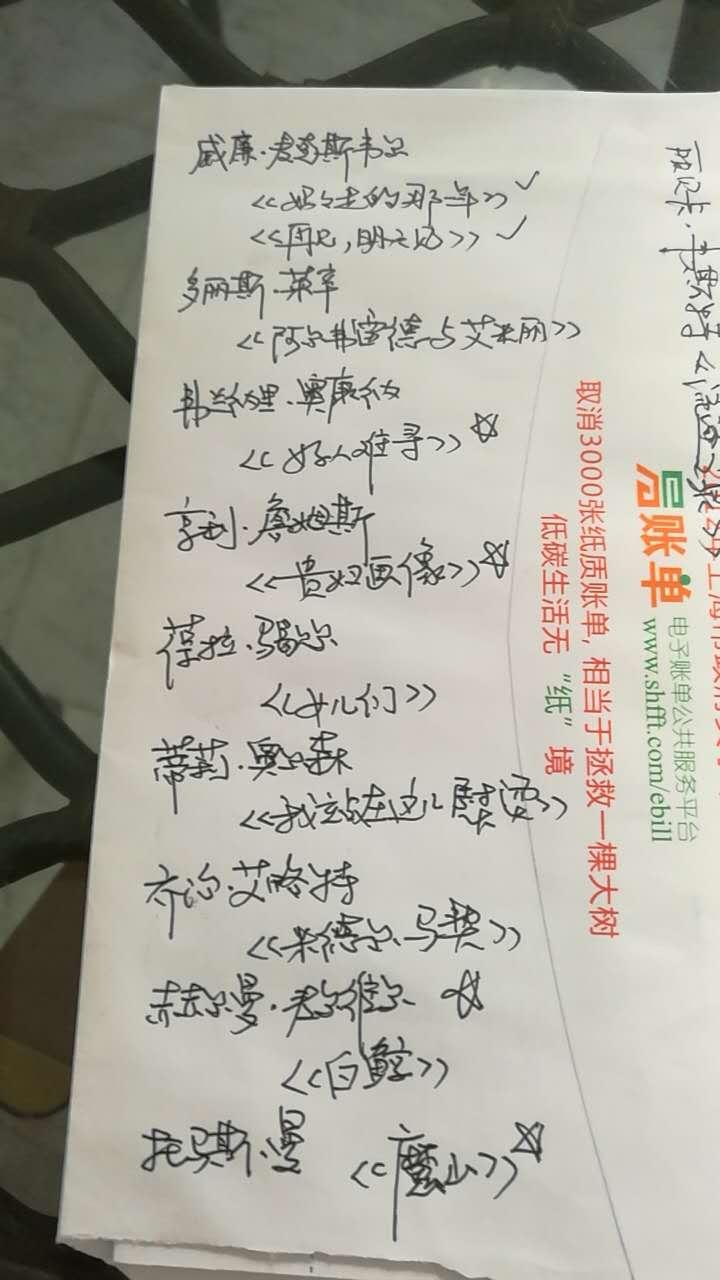 威廉·麦克斯韦尔
《妈妈走的那年》✓
《再见，明天见》✓
多丽斯·莱辛
《阿尔弗雷德与艾米丽》
弗兰纳里·奥康纳
《好人难寻》☆
亨利·詹姆斯
《贵妇画像》☆
葆拉·马歇尔
《女儿们》
蒂莉·奥尔森
《我站在这儿熨烫》
乔治·艾略特
《米德尔马契》
赫尔曼·麦尔维尔 ☆
《白鲸》
托马斯·曼 《魔山》☆
丽贝卡·韦斯特《
取消3000张纸质账单，相当于拯救一棵大树
低碳生活无“纸”境
账单
电子账单公共服务平台
www.shfft.com/ebill